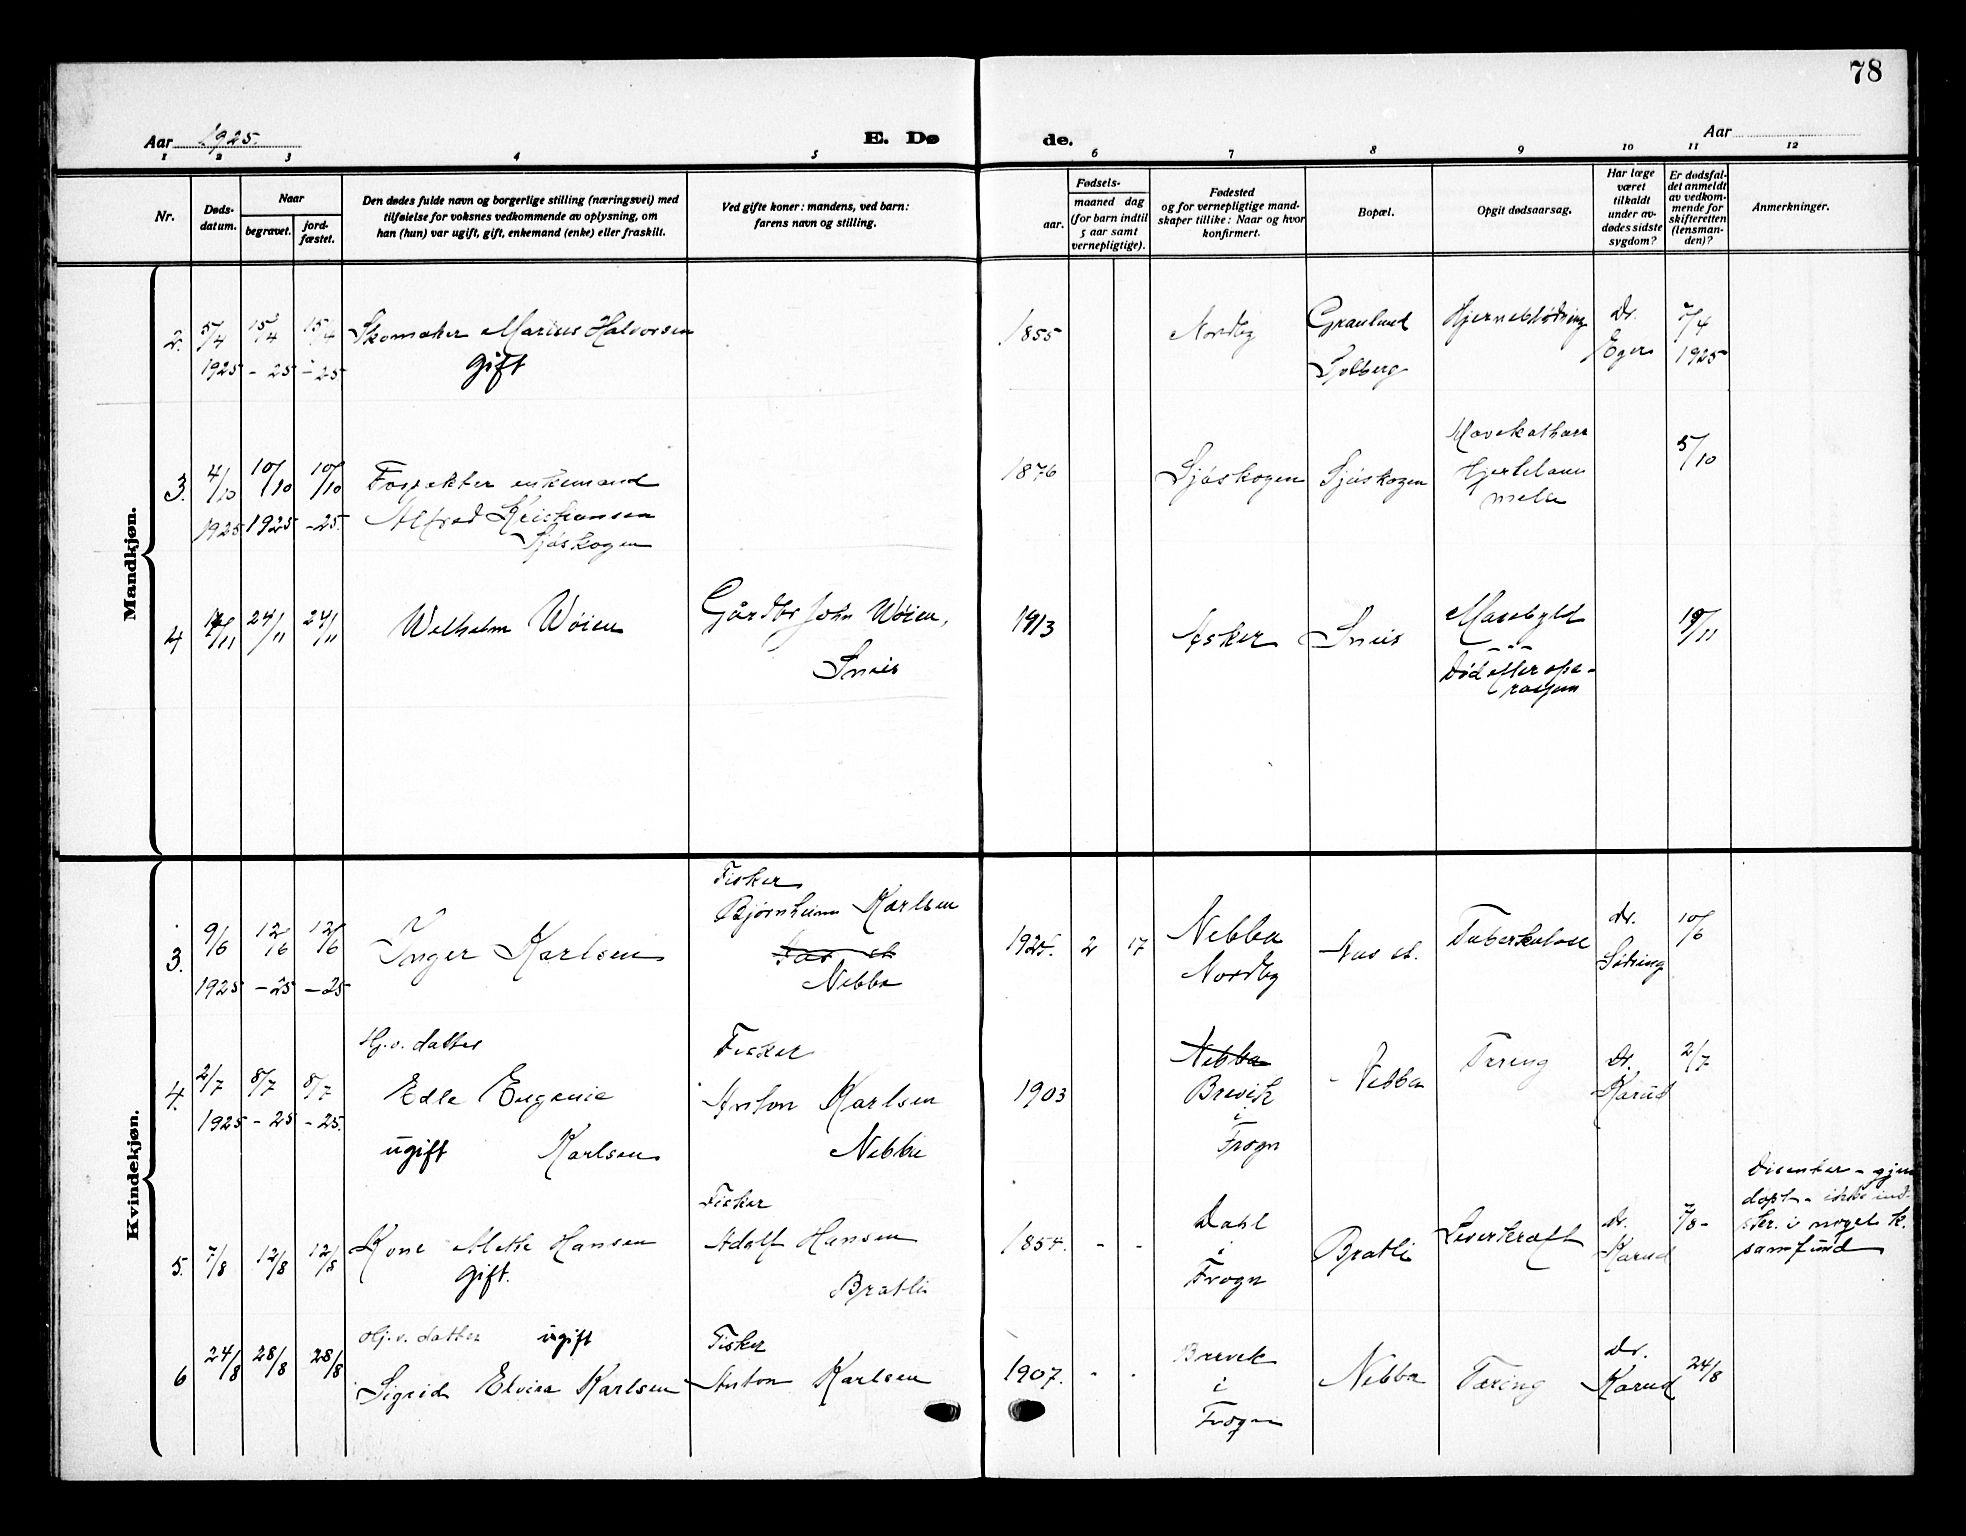 78
Aar 1925.
E. Dø
de.
Aar
1 2 3 4 5 6 7 8 9 10 11 12
Nr.
Døds-
datum.
Naar
begravet.
jord-
fæstet.
Den dødes fulde navn og borgerlige stilling (næringsvei) med
tilføielse for voksnes vedkommende av oplysning, om
han (hun) var ugift, gift, enkemand (enke) eller fraskilt.
Ved gifte koner: mandens, ved barn:
farens navn og stilling.
Fødsels-
aar.
maaned dag
(for barn indtil
5 aar samt
vernepligtige).
Fødested
og for vernepligtige mand-
skaper tillike: Naar og hvor
konfirmert.
Bopæl.
Opgit dødsaarsag.
Har læge
været
tilkaldt
under av-
dødes sidste
sygdom?
Er dødsfal-
det anmeldt
av vedkom-
mende for
skifteretten
(lensman-
den)?
Anmerkninger.
Mandkjøn.
2. 5/4 15/4 15/4 Skomaker Marius Halvorsen
1925 - 25 - 25 gift
1855 Nordby Granlund Hjerneblødning Dr. 7/4
Solberg Eger 1925
3. 4/10 10/10 10/10 enkemand
1925 1925 -25. Alfred Kristiansen
Sjøskogen
1876 Sjøskogen Sjøskogen Mavekatharr 5/10
4 /11 24/11 24/11 Wilhelm Wöien
Gårdbr John Wöien,
Sneis
1913 Asker Sneis 19/11
Död efter ope-
rasjon
Kvindekjøn.
3. 9/6 12/6 12/6 Inger Karlsen
1925 - 25 - 25
Fisker
Bjørnheim Karlsen
Nebba
1925. 2 17 Nebba Aas st. Tuberkulose dr. 10/6
Nordby Sødring
4. 2/7 8/7 8/7 Hj.v. datter
1925 - 25 - 25. Edle Eugenie
ugift Karlsen
Fisker
Anton Karlsen
Nebba
1903 Nebba Nebba Tæring Dr. 2/7
Brevik Karud
i
Frogn
5. 7/8 12/8 12/8 Kone Mette Hansen
gift.
Fisker
Adolf Hansen
Bratli
1854. - - Dahl Bratli Leverkræft dr. 7/8 -
i Karud
Frogn
Disenter - gjen
døpt - ikke ind-
skr. i noget k.
samfund
6 24/8 28/8 28/8 Hj.v. datter ugift
Sigrid Elvira Karlsen
Fisker
Anton Karlsen
1907. - - Brevik Nebba Tæring Dr. 24/8
i Karud
Frogn